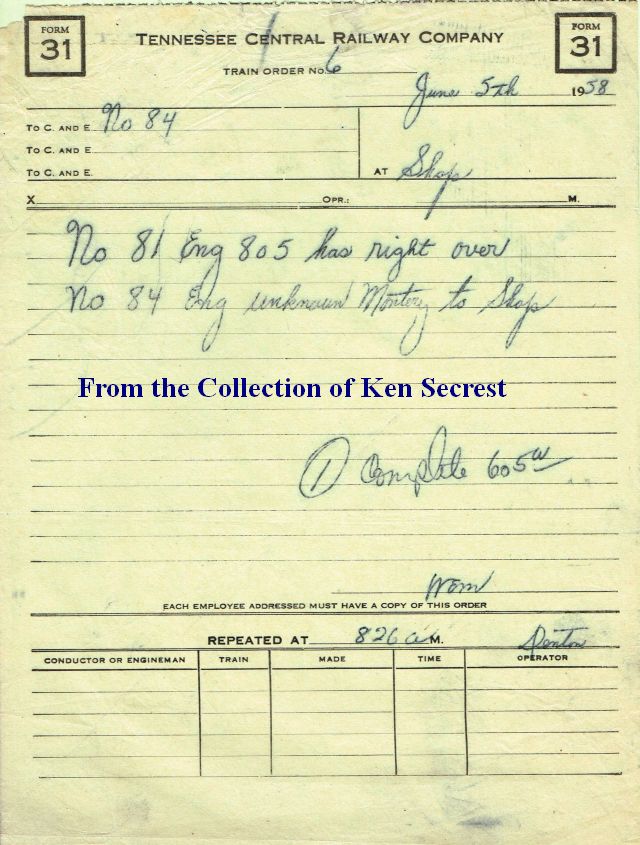 FORM 31 TENNESSEE CENTRAL RAILWAY COMPANY FORM 31
TRAIN ORDER NO. 6
June 5th 1958
TO C. AND E. No 84
TO C. AND E.
TO C. AND E. AT Shop
X OPR.: M.
No 81 Eng 805 has right over
No 84 Eng unknown Monterey to Shop
From the Collection of Ken Secrest
Complete 605
WEM
EACH EMPLOYEE ADDRESSED MUST HAVE A COPY OF THIS ORDER
REPEATED AT 826 a M. Denton
CONDUCTOR OR ENGINEMAN TRAIN MADE TIME OPERATOR